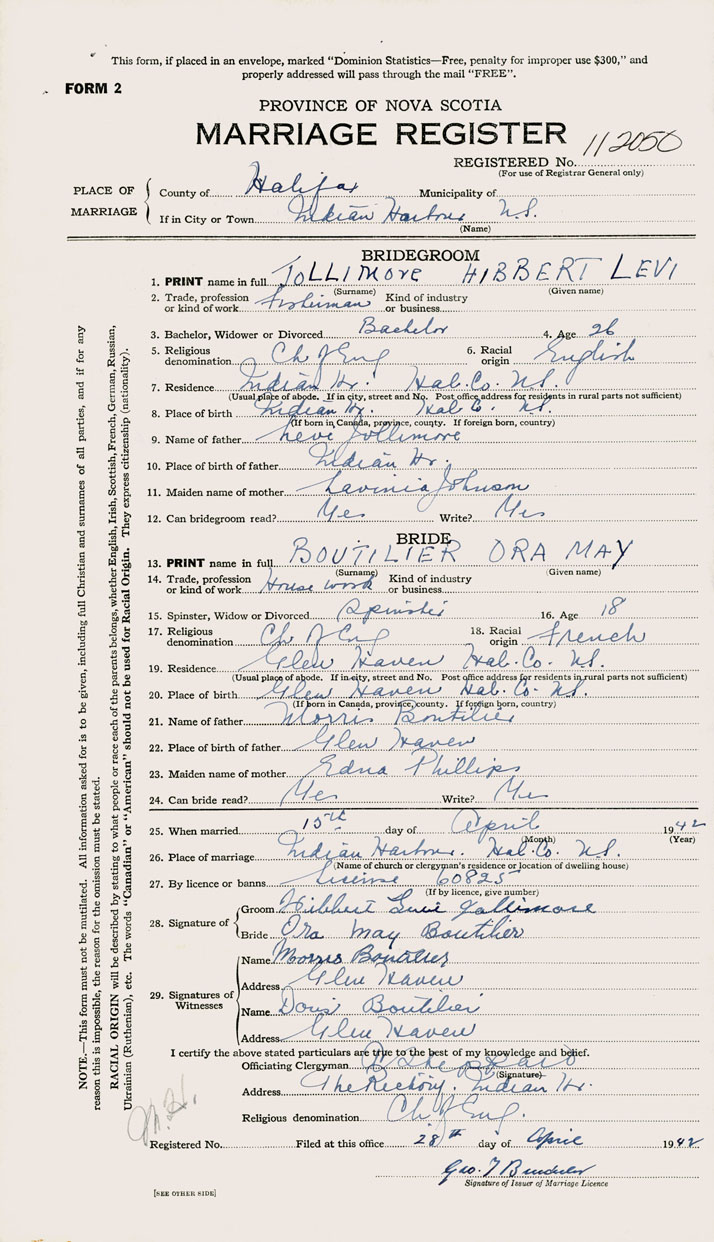 This form, if placed in an envelope, marked "Dominion Statistics—Free, penalty for improper use $300," and
properly addressed will pass through the mail "FREE".
FORM 2
PROVINCE OF NOVA SCOTIA
MARRIAGE REGISTER
REGISTERED No. 112050
(For use of Registrar General only)
PLACE OF MARRIAGE
County of Halifax Municipality of
If in City or Town Indian Harbour N.S.
(Name)
BRIDEGROOM
1. PRINT name in full TOLLIMORE HIBBERT LEVI
(Surname) (Given name)
2. Trade, profession or kind of work Fisherman Kind of industry or business
3. Bachelor, Widower or Divorced Bachelor 4. Age 26
5. Religious denomination Ch of Eng 6. Racial origin English
7. Residence Indian Hr. Hal. Co. N.S.
(Usual place of abode. If in city, street and No. Post office address for residents in rural parts not sufficient)
8. Place of birth Indian Hr. Hal. Co. N.S.
(If born in Canada, province, county. If foreign born, country)
9. Name of father Levi Jollimore
10. Place of birth of father Indian Hr.
11. Maiden name of mother Lavinia Johnson
12. Can bridegroom read? Yes Write? Yes
BRIDE
13. PRINT name in full BOUTILIER ORA MAY
(Surname) (Given name)
14. Trade, profession or kind of work House work Kind of industry or business
15. Spinster, Widow or Divorced Spinster 16. Age 18
17. Religious denomination Ch of Eng 18. Racial origin French
19. Residence Glen Haven Hal. Co. N.S.
(Usual place of abode. If in city, street and No. Post office address for residents in rural parts not sufficient)
20. Place of birth Glen Haven Hal. Co. N.S.
(If born in Canada, province, county. If foreign born, country)
21. Name of father Morris Boutilier
22. Place of birth of father Glen Haven
23. Maiden name of mother Edna Phillips
24. Can bride read? Yes Write? Yes
25. When married 15th day of April 1942
(Month) (Year)
26. Place of marriage Indian Harbour Hal. Co. N.S.
(Name of church or clergyman's residence or location of dwelling house)
27. By licence or banns License 60825
(If by licence, give number)
28. Signature of
Groom Hibbert Levi Jollimore
Bride Ora May Boutilier
29. Signatures of Witnesses
Name Morris Boutilier
Address Glen Haven
Name Doris Boutilier
Address Glen Haven
I certify the above stated particulars are true to the best of my knowledge and belief.
Officiating Clergyman
(Signature)
Address The Rectory. Indian Hr.
Religious denomination Ch of Eng.
Registered No. Filed at this office 28th day of April 1942
Geo. T
Signature of Issuer of Marriage Licence
[SEE OTHER SIDE]
NOTE.—This form must not be mutilated. All information asked for is to be given, including full Christian and surnames of all parties, and if for any
reason this is impossible, the reason for the omission must be stated.
RACIAL ORIGIN will be described by stating to what people or race each of the parents belongs, whether English, Irish, Scottish, French, German, Russian,
Ukrainian (Ruthenian), etc. The words "Canadian" or "American" should not be used for Racial Origin. They express citizenship (nationality).